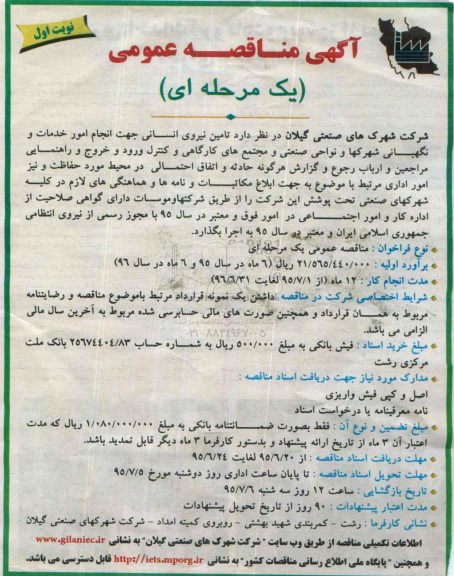 نوبت اول
آگهی مناقصه عمومی
(یک مرحله ای)
شرکت شهرک های صنعتی گیلان در نظر دارد تامین نیروی انسانی جهت انجام امور خدمات و
نگهبانی شهرکها و نواحی صنعتی و مجتمع های کارگاهی و کنترل ورود و خروج و راهنمایی
مراجعین و ارباب رجوع و گزارش هرگونه حادثه و اتفاق احتمالی در محیط مورد حفاظت و نیز
امور اداری مرتبط با موضوع به جهت ابلاغ مکاتبات و نامه ها و هماهنگی های لازم در کلیه
شهرکهای صنعتی تحت پوشش این شرکت را از طریق شرکتهاوموسسات دارای گواهی صلاحیت از
اداره کار و امور اجتماعی در امور فوق و معتبر در سال ۹۵ با مجوز رسمی از نیروی انتظامی
جمهوری اسلامی ایران و معتبر در سال ۹۵ به اجرا بگذارد.
نوع فراخوان : مناقصه عمومی یک مرحله ای
برآورد اولیه : ۲۱/۵۶۵/۴۴۰/۰۰۰ ریال (۶ ماه در سال ۹۵ و ۶ ماه در سال ۹۶)
مدت انجام کار : ۱۲ ماه (از ۹۵/۷/۱ لغایت ۹۶/۶/۳۱)
شرایط اختصاصی شرکت در مناقصه : داشتن یک نمونه قرارداد مرتبط باموضوع مناقصه و رضایتنامه
مربوط به همان قرارداد و همچنین صورت های مالی حسابرسی شده مربوط به آخرین سال مالی
الزامی می باشد.
مبلغ خرید اسناد : فیش بانکی به مبلغ ۵۰۰/۰۰۰ ریال به شماره حساب ۲۵۶۷۴۴۰۴/۸۳ بانک ملت
مرکزی رشت
مدارک مورد نیاز جهت دریافت اسناد مناقصه :
اصل و کپی فیش واریزی
نامه معرفینامه یا درخواست اسناد
مبلغ تضمین و نوع آن : فقط بصورت ضمانتنامه بانکی به مبلغ ۱/۰۸۰/۰۰۰/۰۰۰ ریال که مدت
اعتبار آن ۳ ماه از تاریخ ارائه پیشنهاد و بدستور کارفرما ۳ ماه دیگر قابل تمدید باشد.
مهلت دریافت اسناد مناقصه : از ۹۵/۶/۲۰ لغایت ۹۵/۶/۲۴
مهلت تحویل اسناد مناقصه : تا پایان ساعت اداری روز دوشنبه مورخ ۹۵/۷/۵
تاریخ بازگشایی : ساعت ۱۲ روز سه شنبه ۹۵/۷/۶
مدت اعتبار پیشنهادات : ۹۰ روز از تاریخ تحویل پیشنهادات
نشانی کارفرما : رشت - کمربندی شهید بهشتی - روبروی کمیته امداد - شرکت شهرکهای صنعتی گیلان
اطلاعات تکمیلی مناقصه از طریق وب سایت "شرکت شهرک های صنعتی گیلان" به نشانی www.gilaniec.ir
و همچنین "پایگاه ملی اطلاع رسانی مناقصات کشور" به نشانی http://iets.mporg.ir قابل دسترسی می باشد.